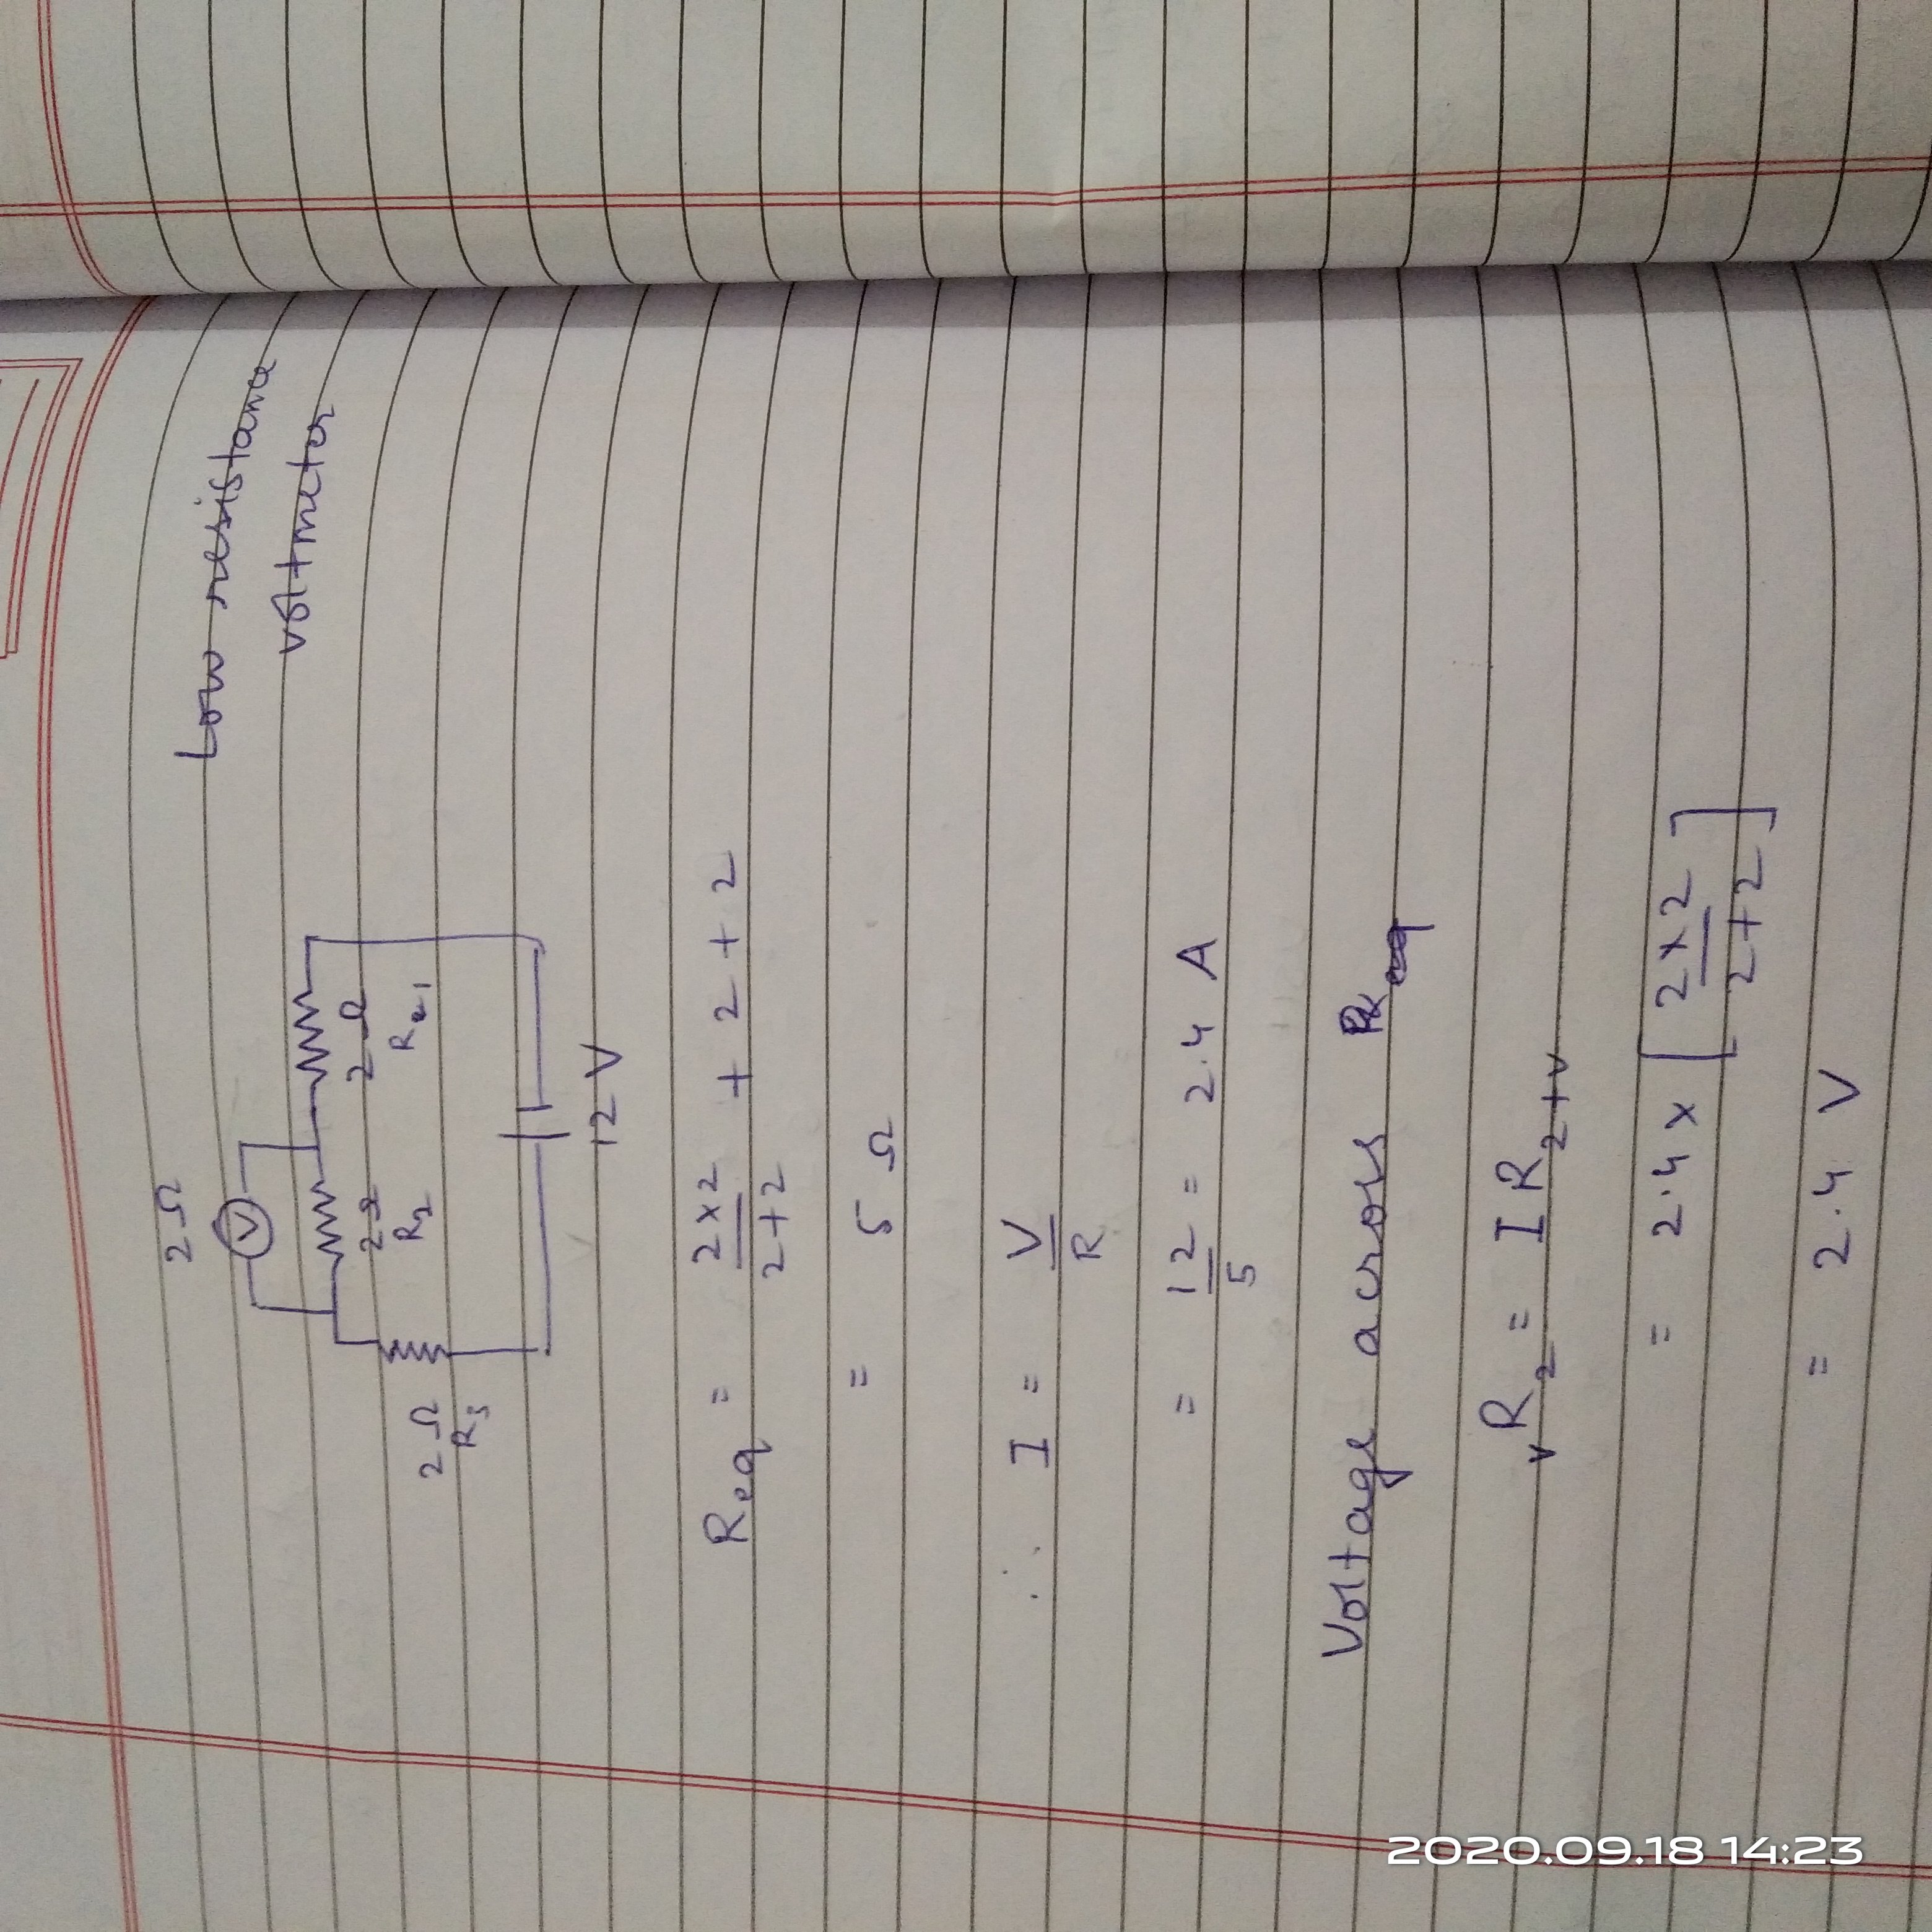 Low resistance
voltmeter
2Ω
V
2Ω
R₂
2Ω
R₁
2Ω
R₃
12V
Req = 2×2/2+2 + 2 + 2
= 5 Ω
∴ I = V/R
= 12/5 = 2.4 A
Voltage across Req
VR₂ = I R₂₊ᵥ
= 2.4 × [2×2/2+2]
= 2.4 V
2020.09.18 14:23